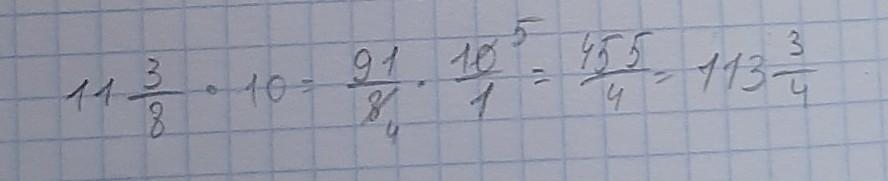 11 3/8 · 10 = 91/8 4 · 10 5/1 = 455/4 = 113 3/4